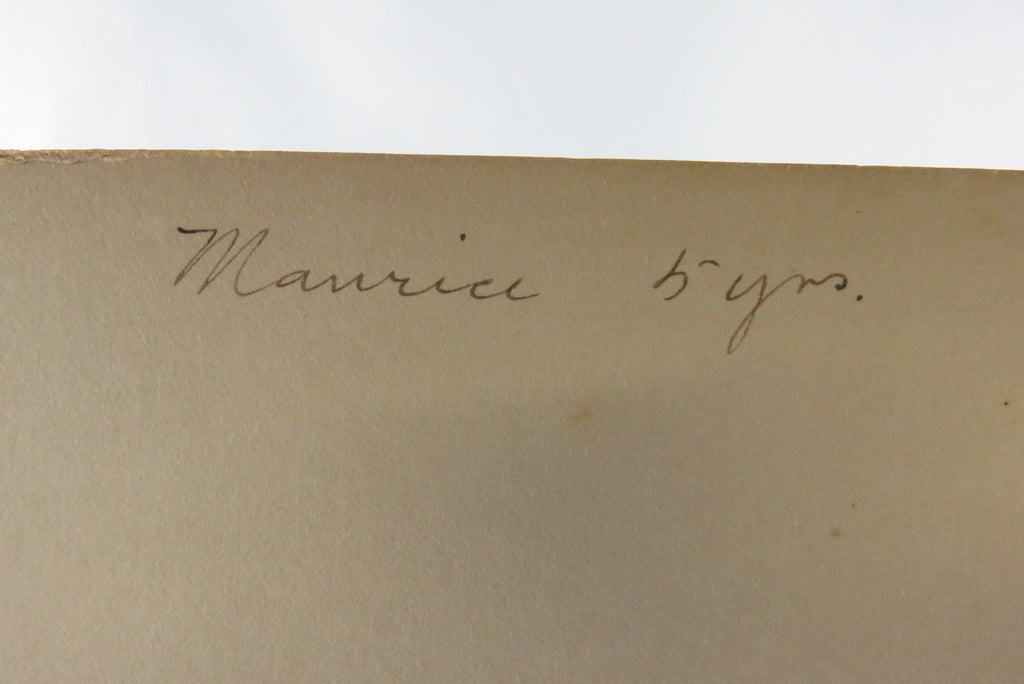 Maurice 5 yrs.